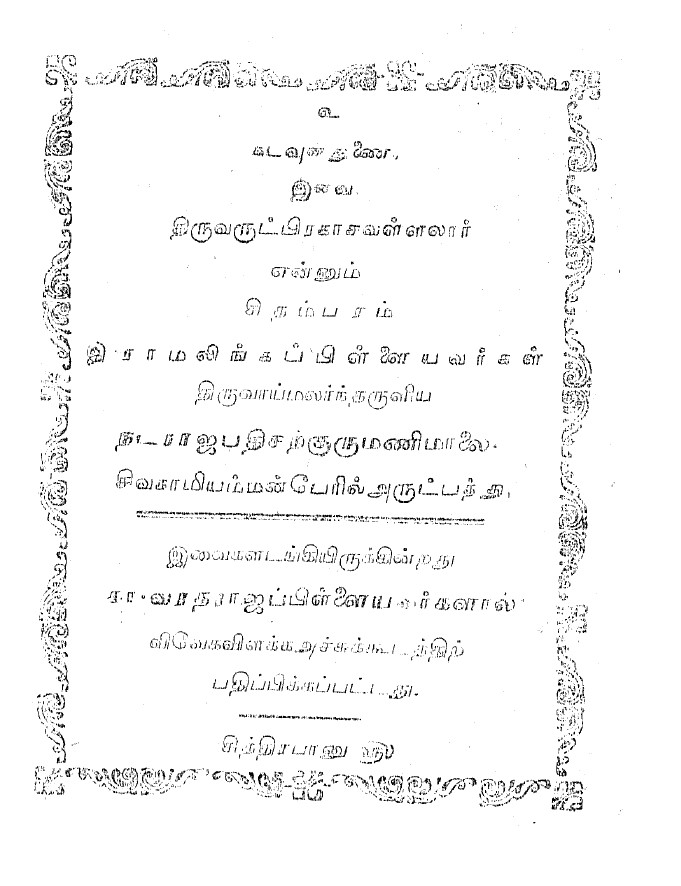 உ
கடவுள் துணை.
இவை.
திருவருட்பிரகாசவள்ளலார்
என்னும்
சிதம்பரம்
இராமலிங்கப்பிள்ளையவர்கள்
திருவாய்மலர்ந்தருளிய
நடராஜபதிசற்குருமணிமாலை.
சிவகாமியம்மன்பேரில் அருட்பத்து.
இவைகளடங்கியிருக்கின்றது
வரதராஜப்பிள்ளையவர்களால்
விவேகவிளக்க அச்சுக்கூடத்திற்
பதிப்பிக்கப்பட்டது.
சித்திரபானு ௵